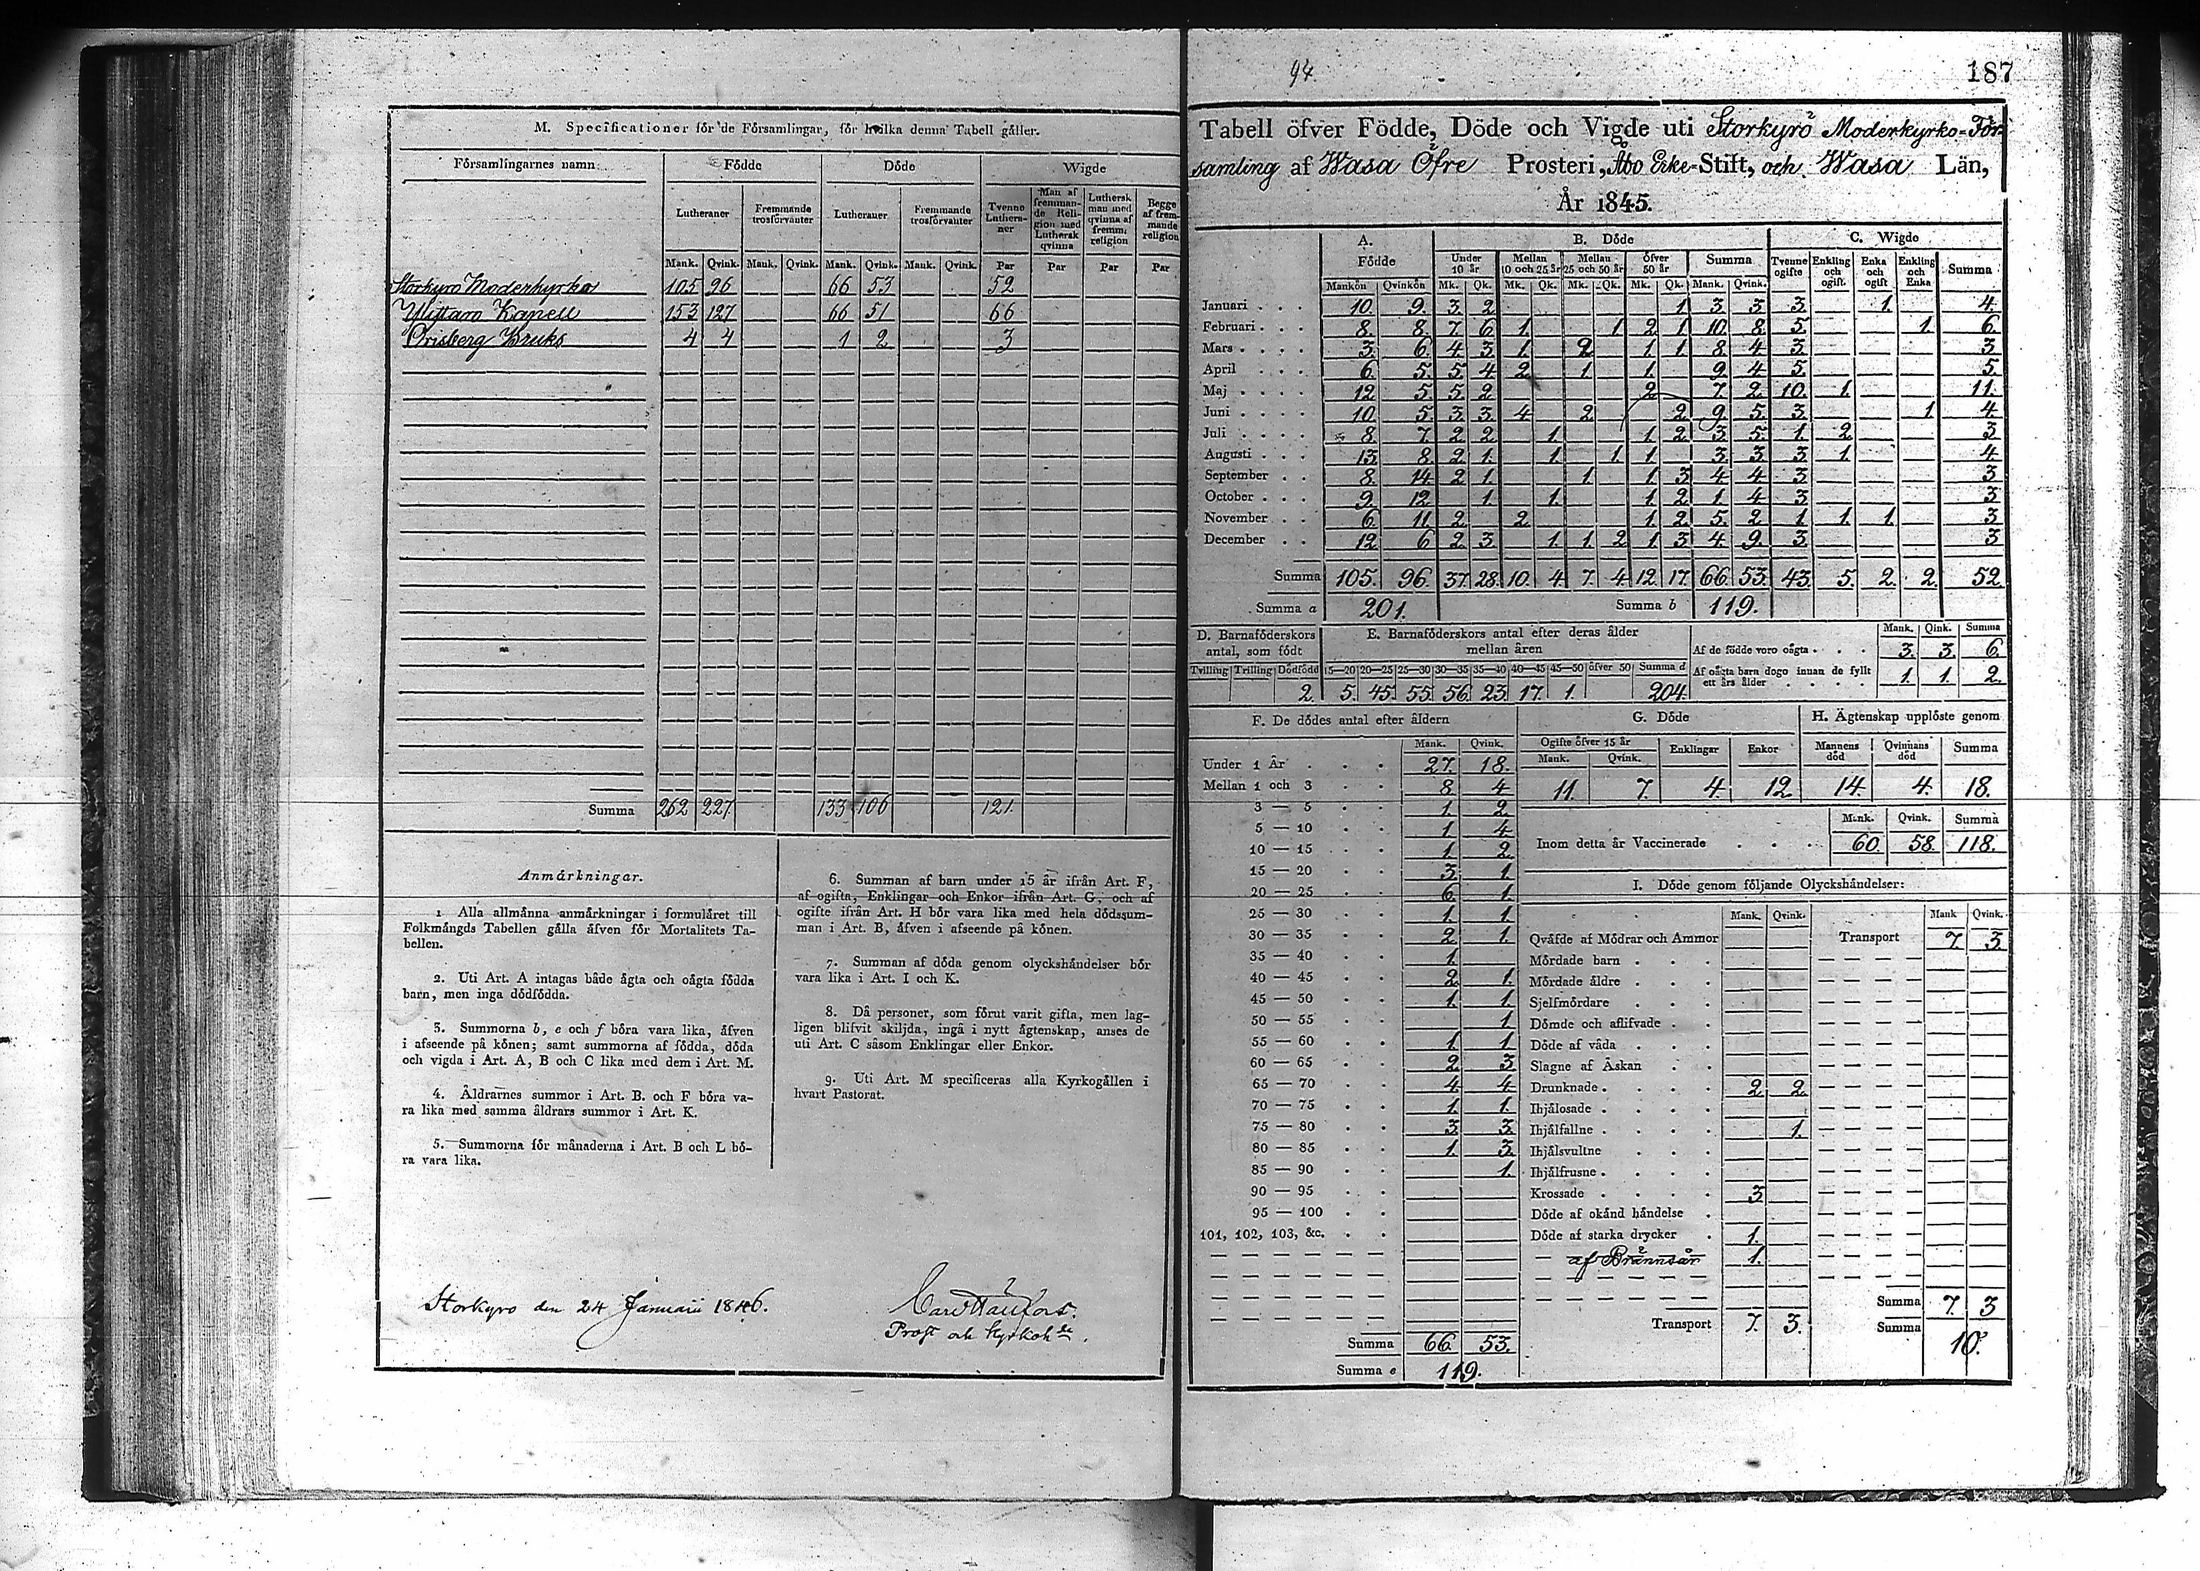 M. Specificationer för de Församlingar, för hvilka denna Tabell gäller.
Församlingarnes namn Födde Döde Wigde
Lutheraner Fremmande trosförvanter Lutheraner Fremmande trosförvanter Tvenne Lutheraner Man af fremmande Religion med Luthersk qvinna Luthersk man med qvinna af fremm. religion Begge af fremmande religion
Mank. Qvink. Mank. Qvink. Mank. Qvink. Mank. Qvink. Par Par Par Par
Storkyro Moderkyrka 105 96 66 53 52
Ylistaro Kapell 153 127 66 51 66
Orisberg Bruks 4 4 1 2 3
Summa 262 227 133 106 121
Anmärkningar.
1 Alla allmänna anmärkningar i formuläret till
Folkmängds Tabellen gälla äfven för Mortalitets Ta-
bellen.
2. Uti Art. A intagas både ägta och oägta födda
barn, men inga dödfödda.
3. Summorna b, e och f böra vara lika, äfven
i afseende på könen; samt summorna af födda, döda
och vigda i Art. A, B och C lika med dem i Art. M.
4. Åldrarnes summor i Art. B. och F böra va-
ra lika med samma åldrars summor i Art. K.
5. Summorna för månaderna i Art. B och L bö-
ra vara lika.
6. Summan af barn under 15 år ifrån Art. F,
af ogifta, Enklingar och Enkor ifrån Art. G, och af
ogifte ifrån Art. H bör vara lika med hela dödssum-
man i Art. B, äfven i afseende på könen.
7. Summan af döda genom olyckshändelser bör
vara lika i Art. I och K.
8. Då personer, som förut varit gifta, men lag-
ligen blifvit skiljda, ingå i nytt ägtenskap, anses de
uti Art. C såsom Enklingar eller Enkor.
9. Uti Art. M specificeras alla Kyrkogällen i
hvart Pastorat.
Storkyro den 24 Januarii 1846.
Prost och Kyrkoh de
94
187
Tabell öfver Födde, Döde och Vigde uti Storkyrö Moderkyrko-För
samling af Wasa Öfre Prosteri, Åbo Erke-Stift, och Wasa Län,
År 1845.
A. Födde B. Döde C. Wigde
Under 10 år Mellan 10 och 25 år Mellan 25 och 50 år Öfver 50 år Summa Tvenne ogifte Enkling och ogift. Enka och ogift Enkling och Enka Summa
Mankön Qvinkön Mk. Qk. Mk. Qk. Mk. Qk. Mk. Qk. Mank. Qvink.
Januari . . . 10. 9. 3. 2. 1. 3. 3. 3. 1. 4.
Februari . . . 8. 8. 7. 6. 1. 1. 2. 1. 10. 8. 5. 1. 6.
Mars . . . . 3. 6. 4. 3. 1. 2. 1. 1. 8. 4. 3. 3.
April . . . 6. 5. 5. 4. 2. 1. 1. 9. 4. 5. 5.
Maj . . . . 12. 5. 5. 2. 2. 7. 2. 10. 1. 11.
Juni . . . . 10. 5. 3. 3. 4. 2. 2. 9. 5. 3. 1. 4.
Juli . . . . 8. 7. 2. 2. 1. 1. 2. 3. 5. 1. 2. 3.
Augusti . . . 13. 8. 2. 1. 1. 1. 1. 3. 3. 3. 1. 4.
September . . 8. 14. 2. 1. 1. 1. 3. 4. 4. 3. 3.
October . . . 9. 12. 1. 1. 1. 2. 1. 4. 3. 3.
November . . 6. 11. 2. 2. 1. 2. 5. 2. 1. 1. 1. 3.
December . . 12. 6. 2. 3. 1. 1. 2. 1. 3. 4. 9. 3. 3.
Summa 105. 96. 37. 28. 10. 4. 7. 4. 12. 17. 66. 53. 43. 5. 2. 2. 52.
Summa a 201. Summa b 119.
D. Barnaföderskors antal, som födt
Tvilling Trilling Dödfödd
2.
E. Barnaföderskors antal efter deras ålder
mellan åren
15—20 20—25 25—30 30—35 35—40 40—45 45—50 öfver 50 Summa d
5. 45. 55. 56. 23. 17. 1. 204.
Mank. Qink. Summa
Af de födde voro oägta . . . 3. 3. 6.
Af oägta barn dogo innan de fyllt
ett års ålder . . . . 1. 1. 2.
F. De dödes antal efter åldern
Mank. Qvink.
Under 1 År . . . 27. 18.
Mellan 1 och 3 . . 8. 4.
3 — 5 . . 1. 2.
5 — 10 . . 1. 4.
10 — 15 . . 1. 2.
15 — 20 . . 3. 1.
20 — 25 . . 6. 1.
25 — 30 . . 1. 1.
30 — 35 . . 2. 1.
35 — 40 . . 1.
40 — 45 . . 2. 1.
45 — 50 . . 1. 1.
50 — 55 . . 1
55 — 60 . . 1. 1
60 — 65 . . 2. 3.
65 — 70 . . 4. 4.
70 — 75 . . 1. 1.
75 — 80 . . 3. 3.
80 — 85 . . 1. 3.
85 — 90 . . 1.
90 — 95 . .
95 — 100 . .
101, 102, 103, &c. . .
Summa 66. 53.
Summa e 119.
G. Döde
Ogifte öfver 15 år Enklingar Enkor
Mank. Qvink.
11. 7. 4. 12.
H. Ägtenskap upplöste genom
Mannens död Qvinnans död Summa
14. 4. 18.
Mank. Qvink. Summa
Inom detta år Vaccinerade . . . 60. 58. 118.
I. Döde genom följande Olyckshändelser:
Mank. Qvink. Mank Qvink.
Qväfde af Mödrar och Ammor Transport 7. 3.
Mördade barn . . .
Mördade äldre . . .
Sjelfmördare . . .
Dömde och aflifvade . .
Döde af våda . . .
Slagne af Åskan . .
Drunknade . . . . 2. 2.
Ihjälosade . . . .
Ihjälfallne . . . . 1.
Ihjälsvultne . . .
Ihjälfrusne . . . .
Krossade . . . . 3
Döde af okänd händelse .
Döde af starka drycker . 1.
af Brännsår 1.
Summa 7. 3
Transport 7. 3. Summa 10.